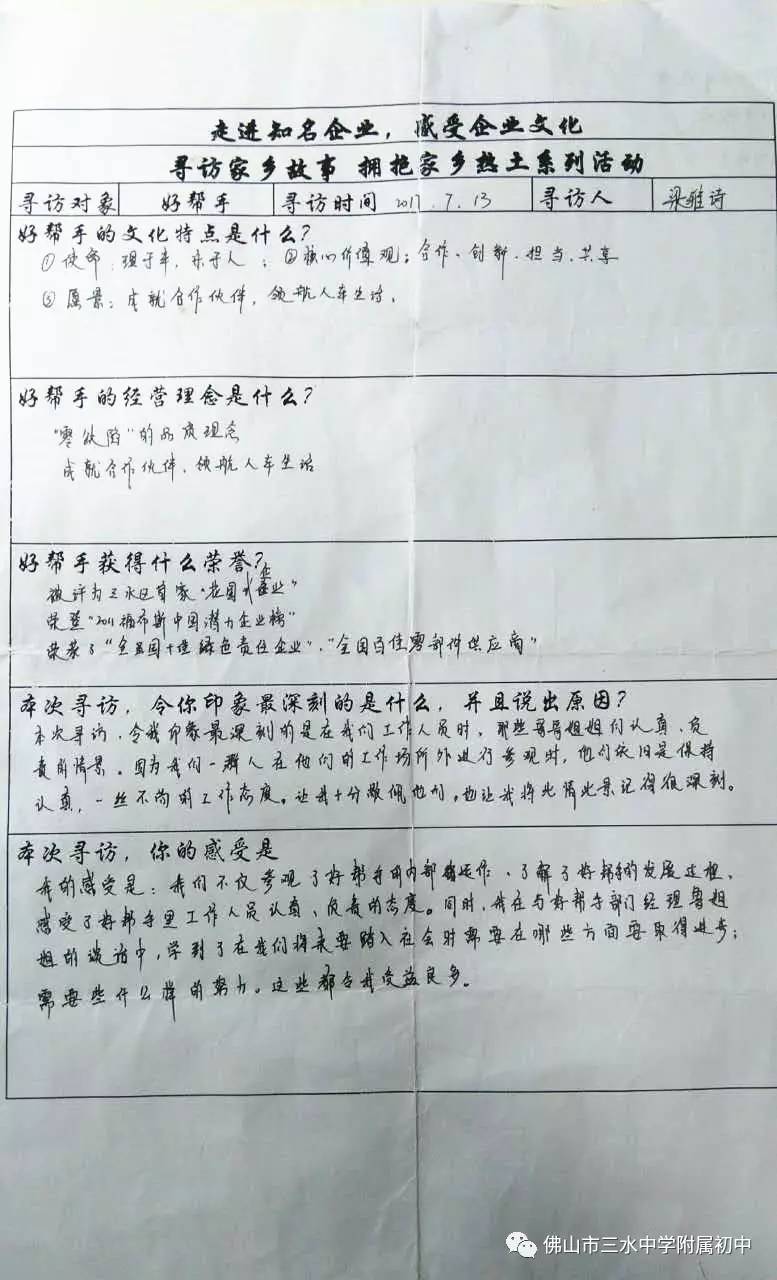 走进知名企业，感受企业文化
寻访家乡故事 拥抱家乡热土系列活动
寻访对象 好帮手 寻访时间 2017.7.13 寻访人 梁雅诗
好帮手的文化特点是什么？
①使命：理于车，乐于人；②核心价值观：合作、创新、担当、共享
③愿景：成就合作伙伴，领航人车生活。
好帮手的经营理念是什么？
“零缺陷”的品质理念
成就合作伙伴、领航人车生活
好帮手获得什么荣誉？
被评为三水区首家“花园式企业”
荣登“2011福布斯中国潜力企业榜”
荣获了“全国十佳绿色责任企业”、“全国百佳零部件供应商”
本次寻访，令你印象最深刻的是什么，并且说出原因？
本次寻访，令我印象最深刻的是在我们工作人员时，那些哥哥姐姐们认真、负
责的情景。因为我们一群人在他们的工作场所外进行参观时，他们依旧是保持
认真，一丝不苟的工作态度。让我十分敬佩他们，也让我将此情此景记得很深刻。
本次寻访，你的感受是
我的感受是：我们不仅参观了好帮手的内部运作、了解了好帮手的发展过程，
感受了好帮手里工作人员认真、负责的态度。同时，我在与好帮手部门经理鲁姐
姐的谈话中，学到了在我们将来要踏入社会时需要在哪些方面要取得进步；
需要些什么样的努力。这些都令我受益良多。
佛山市三水中学附属初中